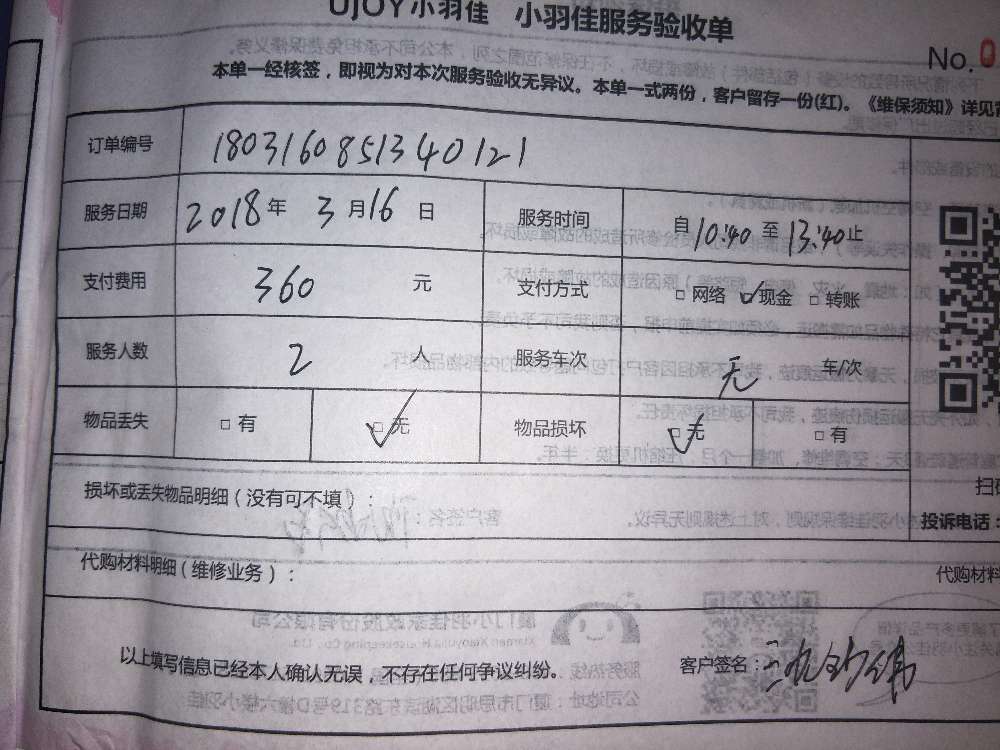 UJOY小羽佳 小羽佳服务验收单
No.0
本单一经核签，即视为对本次服务验收无异议。本单一式两份，客户留存一份(红)。《维保须知》详见背
订单编号 1803160851340121
服务日期 2018年 3月16日 服务时间 自10:40至13:40止
支付费用 360 元 支付方式 □网络 ☑现金 □转账
服务人数 2 人 服务车次 无 车/次
物品丢失 □有 ☑无 物品损坏 ☑无 □有
损坏或丢失物品明细（没有可不填）：
扫码
投诉电话：
代购材料明细（维修业务）：
代购材料
以上填写信息已经本人确认无误，不存在任何争议纠纷。 客户签名：